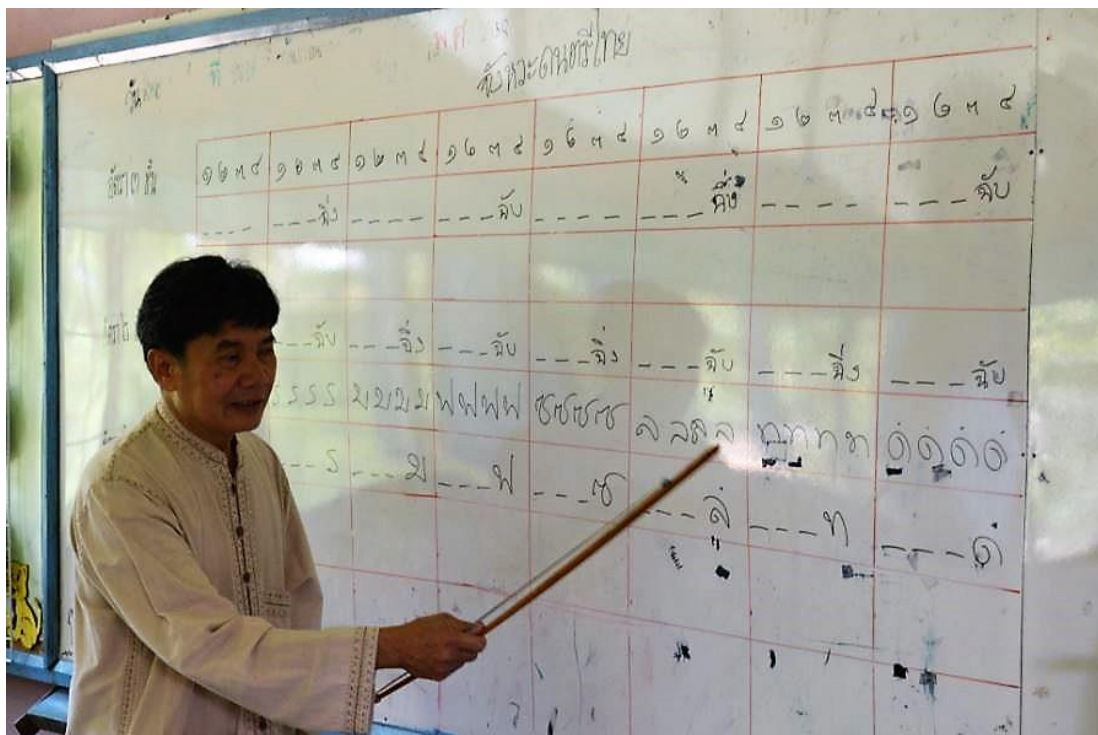 วัน ที่ พ.ศ
จังหวะดนตรีไทย
๑ ๒ ๓ ๔ ๑ ๒ ๓ ๔ ๑ ๒ ๓ ๔ ๑ ๒ ๓ ๔ ๑ ๒ ๓ ๔ ๑ ๒ ๓ ๔ ๑ ๒ ๓ ๔ ๑ ๒ ๓ ๔
อัตรา ๓ ชั้น
_ _ _ _ _ _ _ ฉิ่ง _ _ _ _ _ _ _ ฉับ _ _ _ _ _ _ _ ฉิ่ง _ _ _ _ _ _ _ ฉับ
_ _ _ ฉับ _ _ _ ฉิ่ง _ _ _ ฉับ _ _ _ ฉิ่ง _ _ _ ฉับ _ _ _ ฉิ่ง _ _ _ ฉับ
ร ร ร ร ม ม ม ม ฟ ฟ ฟ ฟ ซ ซ ซ ซ ล ล ล ล ท ท ท ท ดํ ดํ ดํ ดํ
_ _ _ ร _ _ _ ม _ _ _ ฟ _ _ _ ซ _ _ _ ลํ _ _ _ ท _ _ _ ดํ